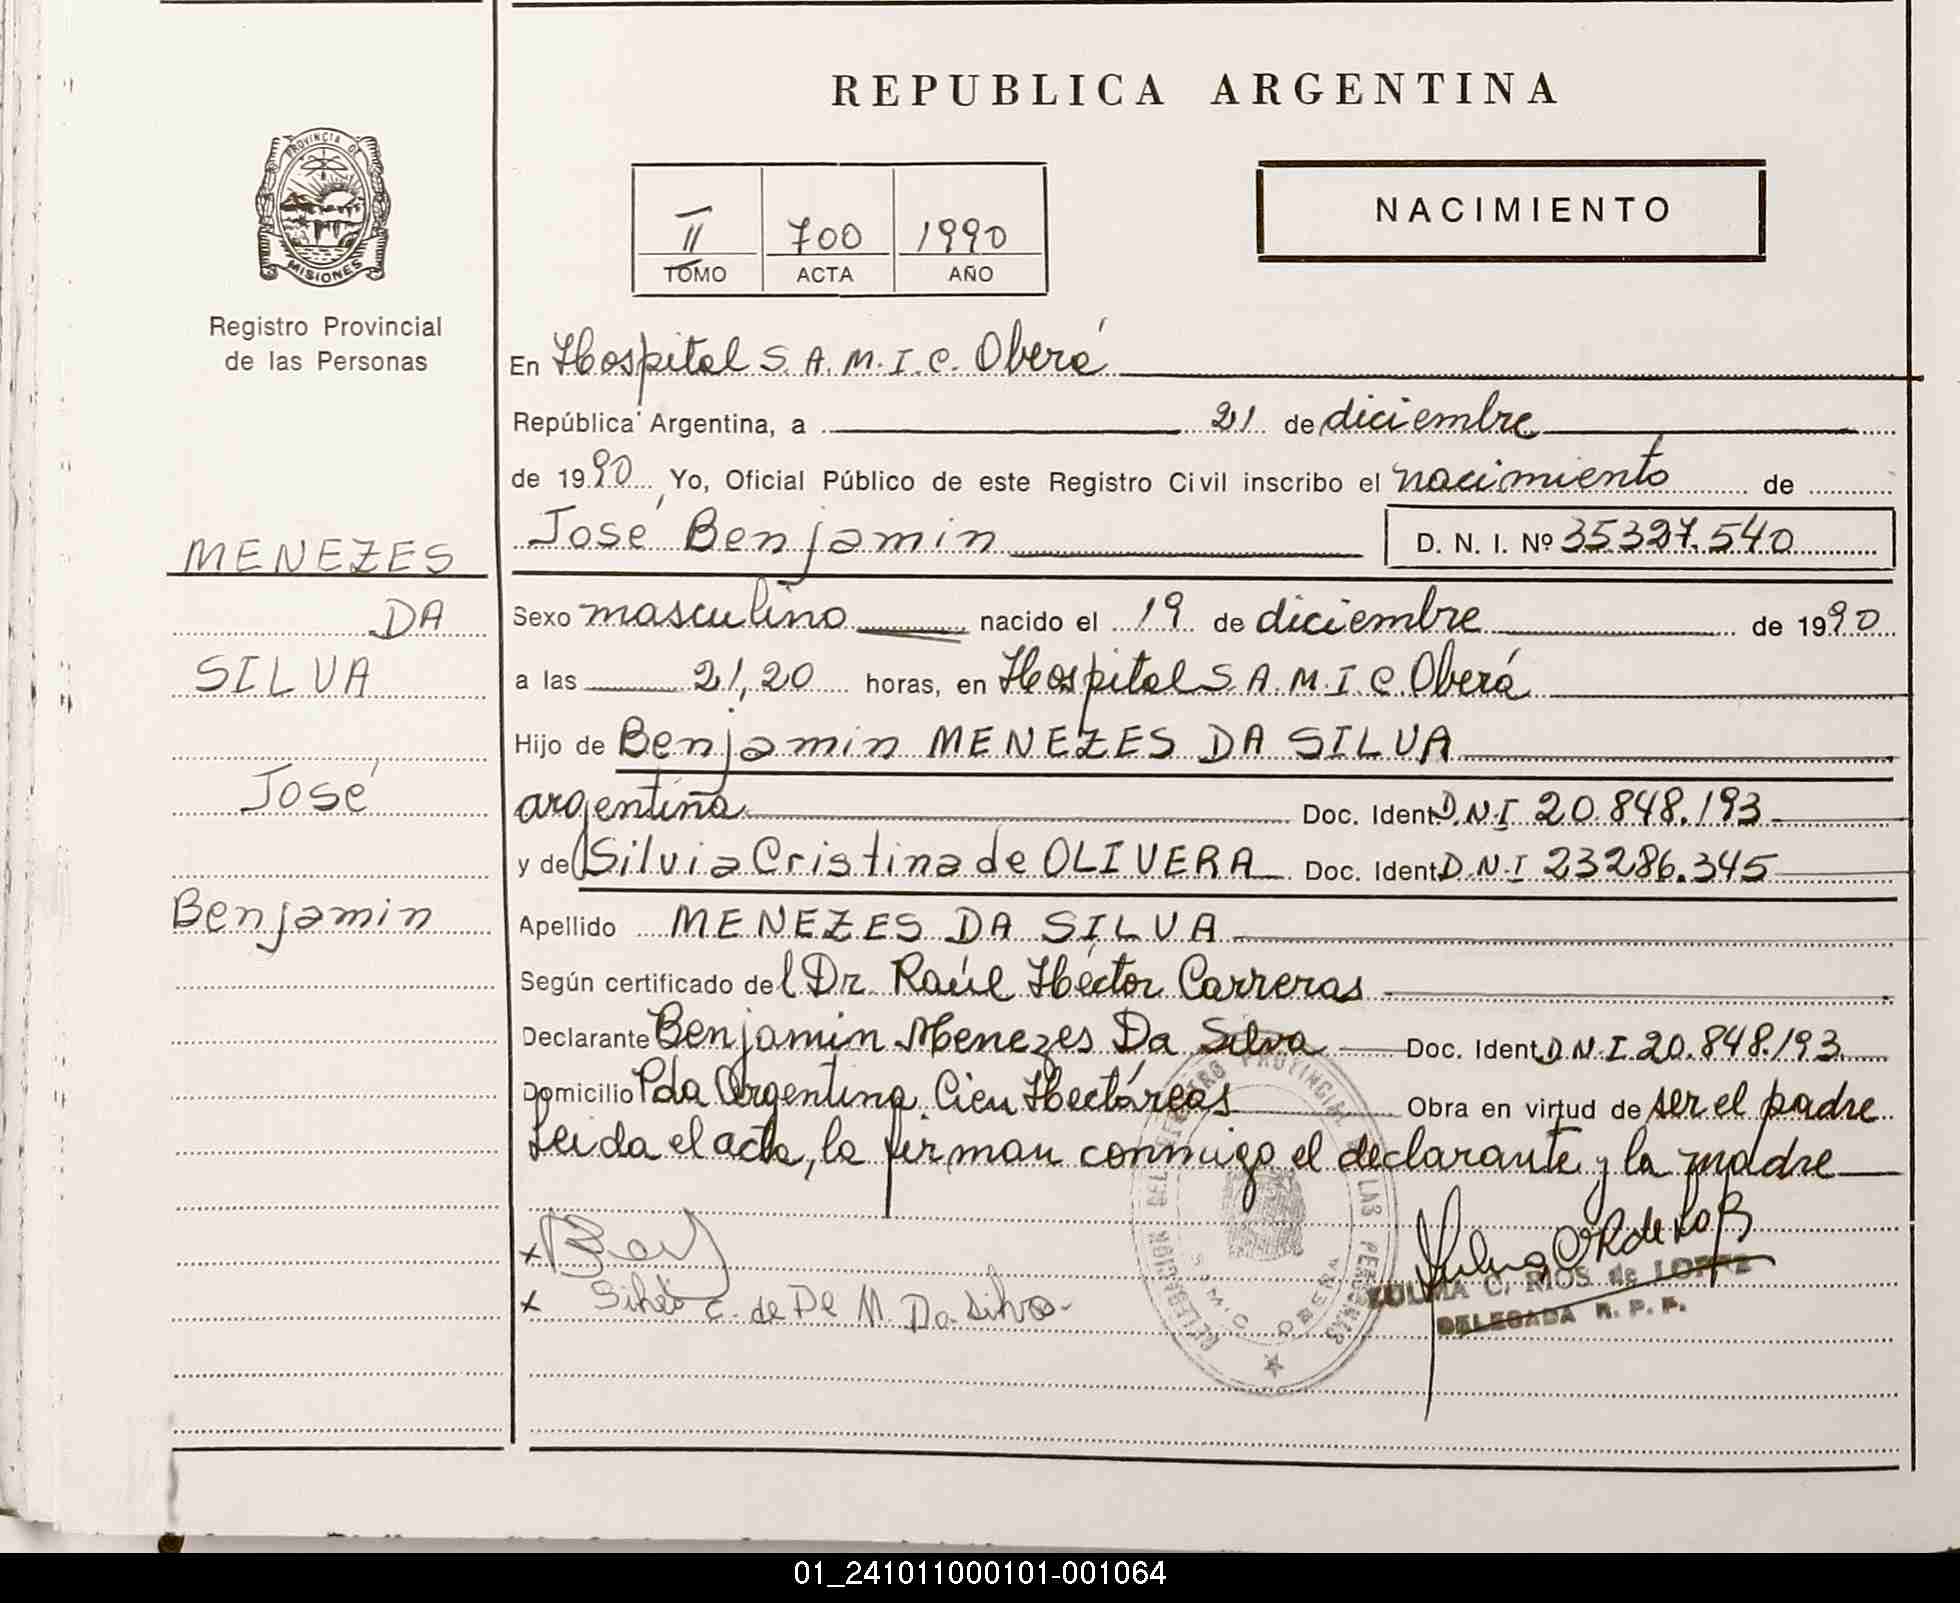 REPUBLICA ARGENTINA
PROVINCIA DE
MISIONES
Registro Provincial
de las Personas
II 700 1990
TOMO ACTA AÑO
NACIMIENTO
En Hospital S. A. M. I. C. Oberá
República Argentina, a 21 de diciembre
de 1990 Yo, Oficial Público de este Registro Civil inscribo el nacimiento de
José Benjamin D. N. I. Nº 35327.540
MENEZES
DA
SILVA
José
Benjamin
Sexo masculino nacido el 19 de diciembre de 1990
a las 21,20 horas, en Hospital S. A. M. I. C. Oberá
Hijo de Benjamin MENEZES DA SILVA
argentina Doc. Ident. D.N.I 20.848.193
y de Silvia Cristina de OLIVERA Doc. Ident. D.N.I 23286.345
Apellido MENEZES DA SILVA
Según certificado del Dr. Raúl Héctor Carreras
Declarante Benjamin Menezes Da Silva Doc. Ident. D.N.I. 20.848.193
Domicilio Pda Argentina. Cien Hectáreas Obra en virtud de ser el padre
Leida el acta, la firman conmigo el declarante y la madre
DELEGACION DEL REGISTRO PROVINCIAL DE LAS PERSONAS
OBERA
x
x C. de De M. Da Silva
ZULMA C. RIOS de LOPEZ
DELEGADA R. P. P.
01_241011000101-001064